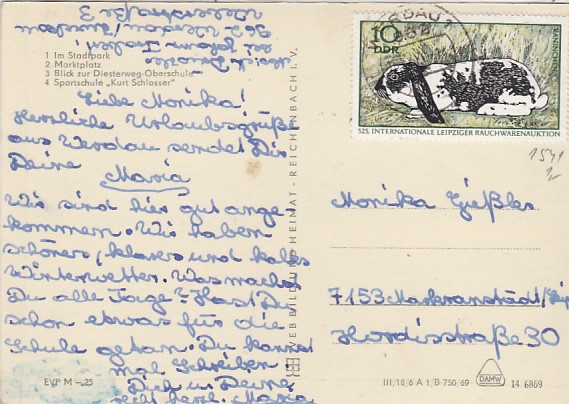 1 Im Stadtpark
2 Marktplatz
3 Blick zur Diesterweg-Oberschule
4 Sportschule „Kurt Schlosser"
Liebe Monika!
Herzliche Urlaubsgrüße
aus Werdau sendet Dir
Deine
Maria
Wir sind hier gut ange-
kommen. Wir haben
schönes, klares und kaltes
Winterwetter. Was machst
Du alle Tage? Hast Du
schon etwas für die
Schule getan. Du kannst
mal Schreiben.
Dich u. Deine
recht herzl. Maria
bei
962 Werdau
3
EVP M –.25
VEB BILD UND HEIMAT · REICHENBACH I. V.
10
DDR
KANINCHEN
525. INTERNATIONALE LEIPZIGER RAUCHWARENAUKTION
1541
Monika Gießler
7153 Markranstädt/
Hordisstraße 30
III/18/6 A 1/B 750/69
DAMW
14 6869